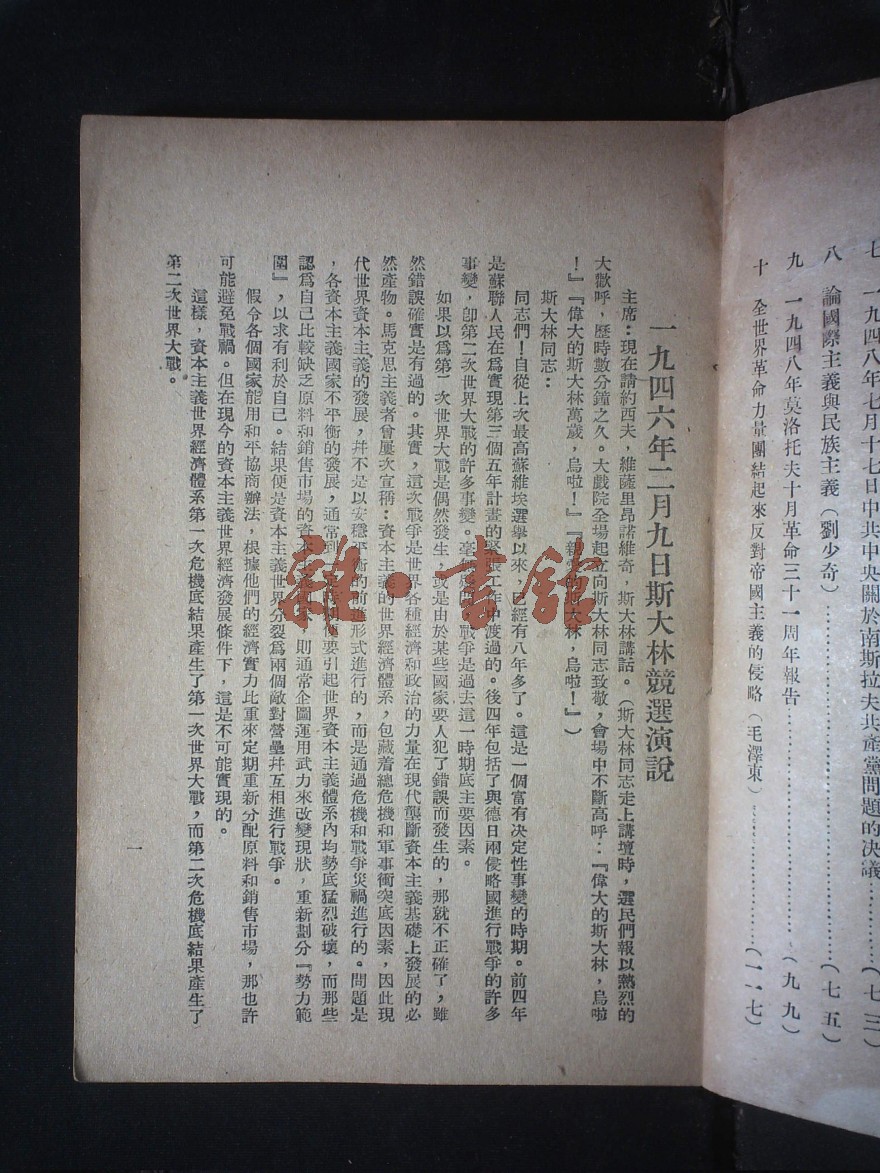 七 一九四八年七月十七日中共中央關於南斯拉夫共產黨問題的决議…………(七三)
八 論國際主義與民族主義(劉少奇)……………………(七五)
九 一九四八年莫洛托夫十月革命三十一周年報告……………………(九九)
十 全世界革命力量團結起來反對帝國主義的侵略(毛澤東)……………………(一一七)
一九四六年二月九日斯大林競選演說
主席:現在請約西夫,維薩里昂諾維奇,斯大林講話。(斯大林同志走上講壇時,選民們報以熱烈的
大歡呼,歷時數分鐘之久。大戲院全場起立向斯大林同志致敬,會場中不斷高呼:『偉大的斯大林,烏啦
!』『偉大的斯大林萬歲,烏啦!』『親愛的斯大林,烏啦!』)
斯大林同志:
同志們!自從上次最高蘇維埃選舉以來,已經有八年多了。這是一個富有决定性事變的時期。前四年
是蘇聯人民在爲實現第三個五年計畫的緊張工作中渡過的。後四年包括了與德日兩侵略國進行戰爭的許多
事變,卽第二次世界大戰的許多事變。毫無疑問,戰爭是過去這一時期底主要因素。
如果以爲第二次世界大戰是偶然發生,或是由於某些國家要人犯了錯誤而發生的,那就不正確了,雖
然錯誤確實是有過的。其實,這次戰爭是世界各種經濟和政治的力量在現代壟斷資本主義基礎上發展的必
然產物。馬克思主義者曾屢次宣稱:資本主義的世界經濟體系,包藏着總危機和軍事衝突底因素,因此現
代世界資本主義的發展,幷不是以安穩平衡的前進形式進行的,而是通過危機和戰爭災禍進行的。問題是
,各資本主義國家不平衡的發展,通常到 要引起世界資本主義體系內均勢底猛烈破壞,而那些
認爲自己比較缺乏原料和銷售市場的資本主義國家,則通常企圖運用武力來改變現狀,重新劃分『勢力範
圍』,以求有利於自己。結果便是資本主義世界分裂爲兩個敵對營壘幷互相進行戰爭。
假令各個國家能用和平協商辦法,根據他們的經濟實力比重來定期重新分配原料和銷售市場,那也許
可能避免戰禍。但在現今的資本主義世界經濟發展條件下,這是不可能實現的。
這樣,資本主義世界經濟體系第一次危機底結果產生了第一次世界大戰,而第二次危機底結果產生了
第二次世界大戰。
一
雜·書館